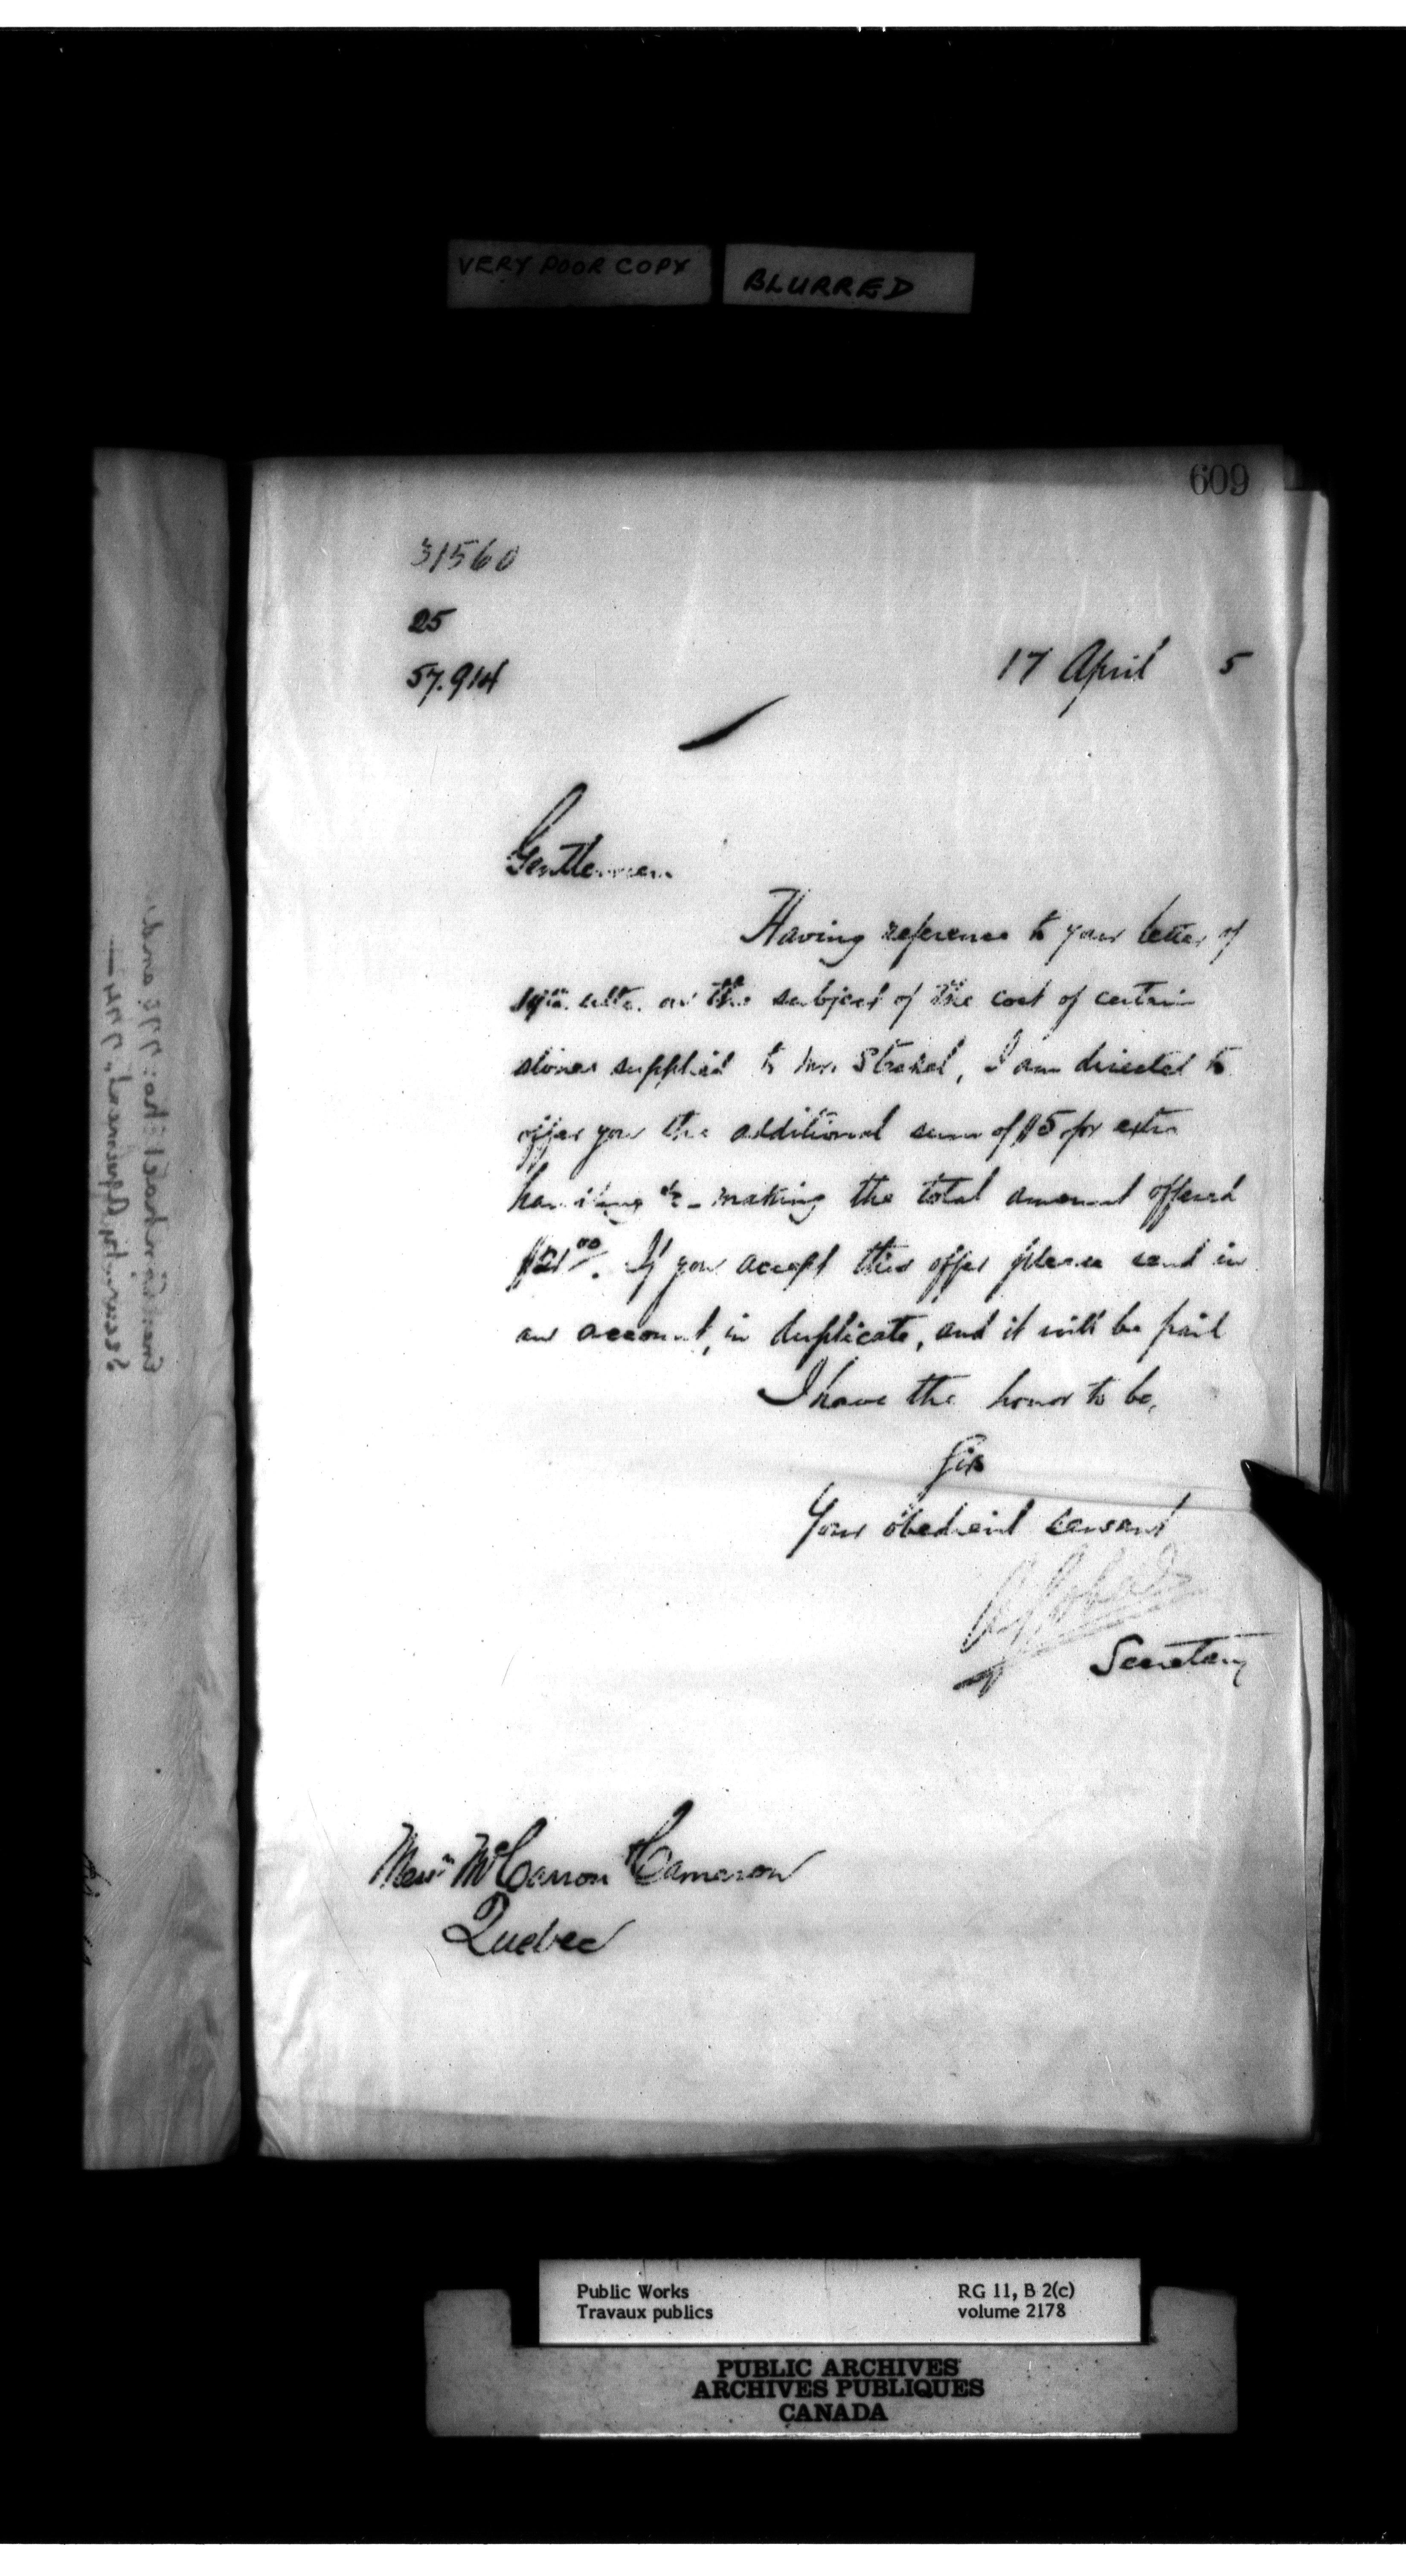 VERY POOR COPY
BLURRED
609
31560
25
57.914
17 April 5
Gentlemen
Having reference to your letter of
19th ulto. on the subject of the cost of certain
stones supplied to Mr. Steckel, I am directed to
offer you the additional sum of $5 for extra
handling &c - making the total amount offered
If you accept this offer please send in
an account, in duplicate, and it will be paid
I have the honor to be,
Sir
Your obedient servant
Secretary
Messrs McCarron & Cameron
Quebec
Public Works
Travaux publics
RG 11, B 2(c)
volume 2178
PUBLIC ARCHIVES
ARCHIVES PUBLIQUES
CANADA